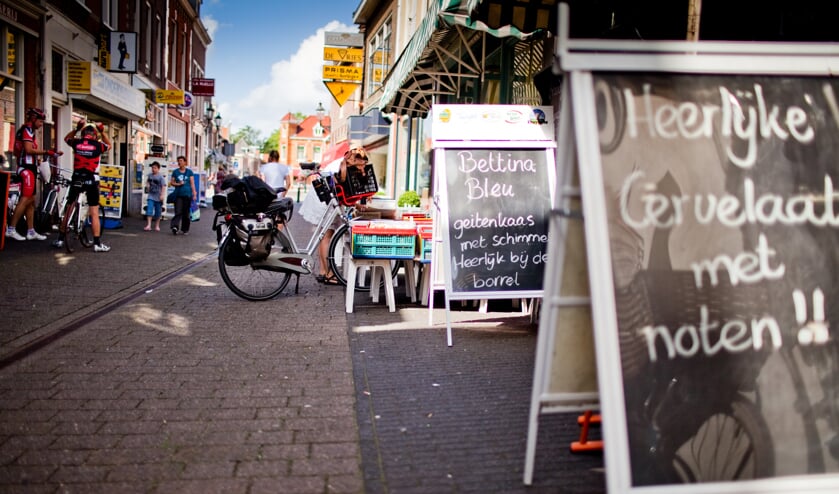 DE VRIES
PRISMA
Bettina
Bleu
geitenkaas
met schimmel
Heerlijk bij de
borrel
Heerlijke
Cervelaat
met
noten !!